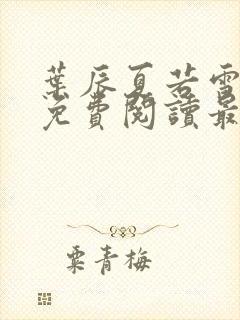 葉辰夏若雪
免費閱讀最
粟青梅